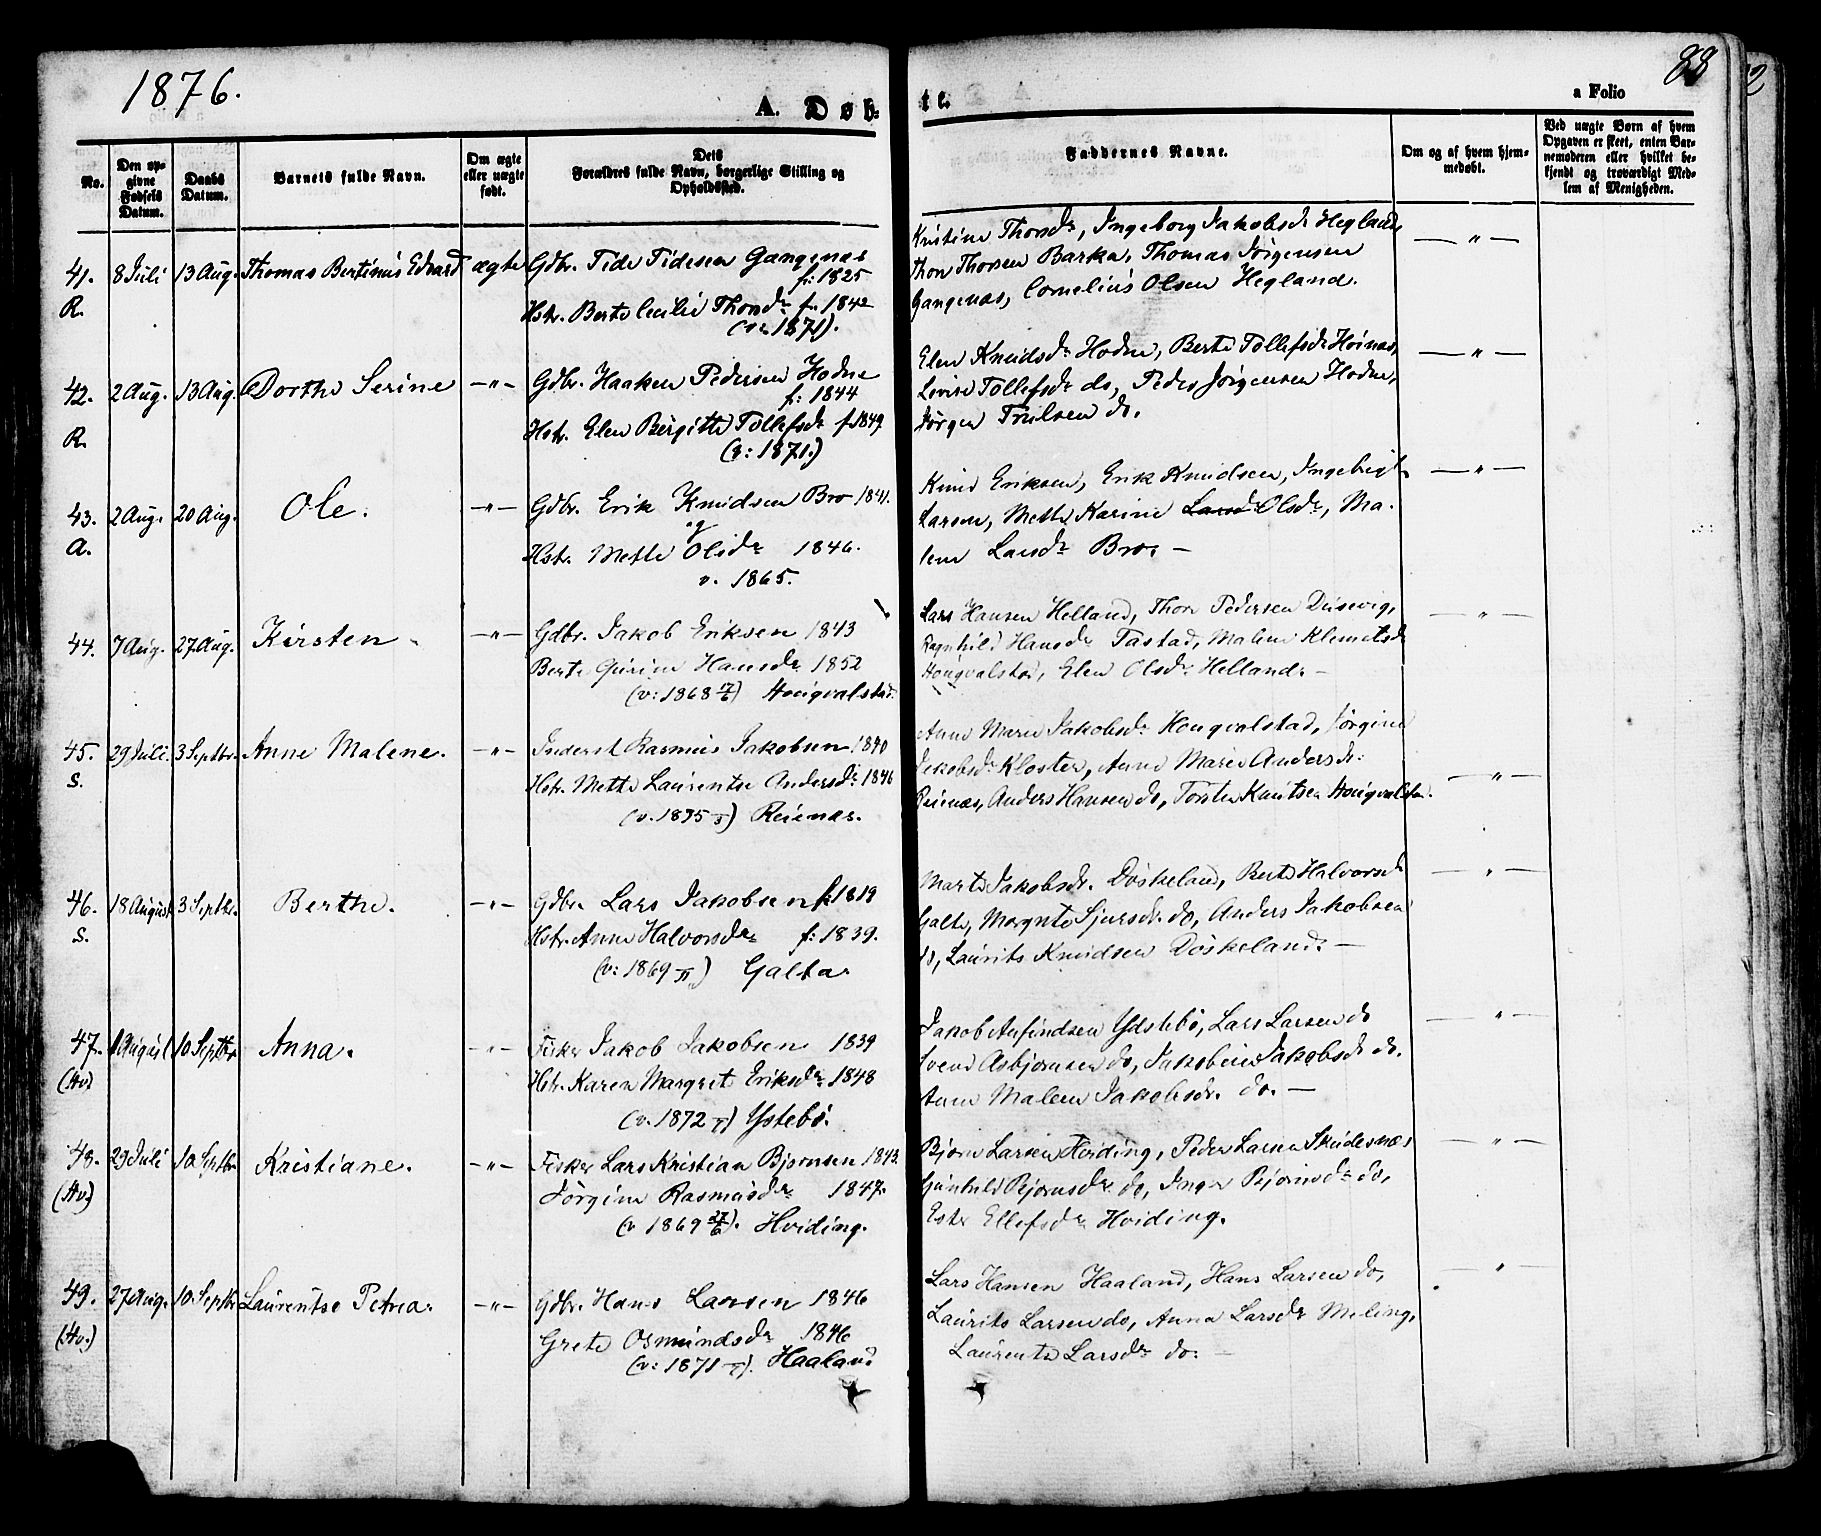 1876.
88
A. Døb-
te.
a Folio
No.
Den op-
givne
Fødsels
Datum.
Daabs
Datum.
Barnets fulde Navn.
Om ægte
eller uægte
født.
Dets
Forældres fulde Navn, borgerlige Stilling og
Opholdssted.
Faddernes Navne.
Om og af hvem hjem-
medøbt.
Ved uægte Børn af hvem
Opgaven er skeet, enten Bar-
nemoderen eller hvilket be-
kjendt og troværdigt Med-
lem af Menigheden.
41. 8 Juli 13 Aug. Thomas Bertinus Edvard ægte Gdbr. Tide Tidesen Gangenæs
f: 1825
R.
Hstr. Berte Cecilie Thorsdr f. 1842
(v: 1871).
Kristine Thorsdr, Ingeborg Jakobsdr Hegland,
Thor Thorsen Barka, Thomas Jørgensen
Gangenæs, Cornelius Olsen Hegland.
— " —
42. 2 Aug. 13 Aug. Dorthe Serine —"— Gdbr. Haaken Pedersen Hodne
f: 1844
R.
Hstr. Elen Bergitte Tollefsdr f. 1849
(v: 1871.)
Elen Knudsdr Hodne, Berte Tollefsdr Høinæs,
Lovise Tollefsdr do, Peder Jørgensen Hodne,
Jørgen Trulsen do.
— " —
43. 2 Aug. 20 Aug. Ole. —"— Gdbr. Erik Knudsen Bro 1841.
A.
og
Hstr. Mette Olsdr 1846.
v. 1865.
Knud Eriksen, Erik Knudsen, Ingebrigt
Larsen, Mette Karine Larsd Olsdr, Ma-
lene Larsdr Bro. —
— " —
44. 7 Aug. 27 Aug. Kirsten. —"— Gdbr. Jakob Eriksen 1843
Berte Gurine Hansdr 1852
(v: 1868) Hougvalstad.
Lars Hansen Helland, Thore Pedersen Dusevig,
Ragnhild Hansdr Tastad, Malene Klemetsdr
Hougvalstad, Elen Olsdr Helland. —
— " —
45. 29 Juli. 3 Septbr. Anne Malene. —"— Inderst Rasmus Jakobsen 1840
S.
Hstr. Mette Laurentse Andersdr 1846
(v. 1875) Reienæs.
Anne Marie Jakobsdr Hougvalstad, Jørgine
Jakobsdr Kloster, Anne Marie Andersdr
Reienæs, Anders Hansen do, Torsten Knutsen Hougvalstad.
— " —
46. 18 August 3 Septbr. Berthe. —"— Gdbr. Lars Jakobsen f: 1819
S.
Hstr. Anne Halvorsdr f: 1839.
(v: 1869) Galta.
Marte Jakobsdr. Døskeland, Berte Halvorsdr
Galte, Margrete Sjursdr. do, Anders Jakobsen
do, Laurits Knudsen Døskeland. —
— " —
47. August 10 Septbr Anna. —"— Fisker Jakob Jakobsen 1839
(Hv)
Hstr. Karen Margret Eriksdr 1848
(v. 1872) Ystebø.
Jakob Anfindsen Ydstebø, Lars Larsen do
Svend Asbjørnsen do, Jakobine Jakobsdr do.
Anne Malene Jakobsdr. do. —
— " —
48. 29 Juli 10 Septbr Kristiane. —"— Fisker Lars Kristian Bjørnsen 1843.
(Hv)
Jørgine Rasmusdr 1847.
(v 1869 27/6). Hviding.
Bjørn Larsen Hviding, Peder Larsen Skudesnæs
Gunhild Bjørnsdr do, Inger Bjørnsdr do,
Ester Ellefsdr Hviding.
— " —
49. 27 Aug. 10 Septbr Laurentse Petrea. —"— Gdbr. Hans Larsen 1846
(Hv.)
Grete Osmundsdr 1846
(v: 1871). Haaland
Lars Hansen Haaland, Hans Larsen do,
Laurits Larsen do, Anna Larsdr Meling,
Laurentse Larsdr do. —
— " —